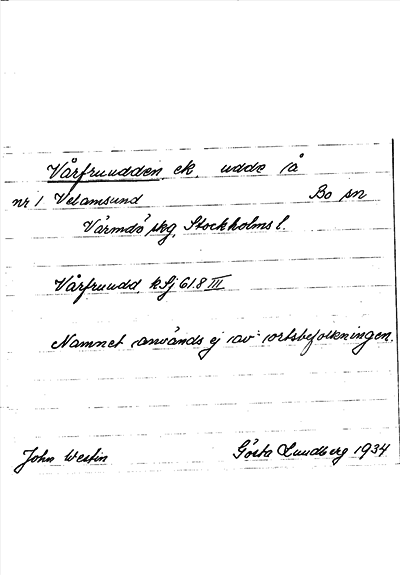 Vårfruudden, ek. udde på
nr 1 Velamsund Bo sn
Värmdö skg, Stockholms l.
Vårfruudd, k Sj 61.8 III
Namnet används ej av ortsbefolkningen.
John Westin Gösta Lundberg 1934